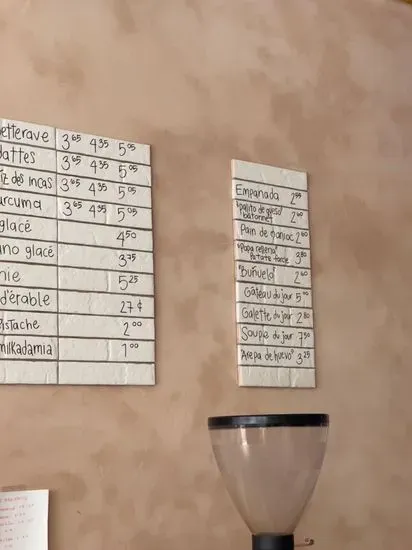 etterave 3⁶⁵ 4³⁵ 5⁰⁵
dattes 3⁶⁵ 4³⁵ 5⁰⁵
ïz des incas 3⁶⁵ 4³⁵ 5⁰⁵
urcuma 3⁶⁵ 4³⁵ 5⁰⁵
glacé 4⁵⁰
ano glacé 3⁷⁵
nie 5²⁵
d'érable 27¢
istache 2⁰⁰
milkadamia 1⁰⁰
Empanada 2⁹⁵
"palito de queso"
batonnet 2⁶⁰
Pain de manioc 2⁶⁰
"Papa rellena"
Patate farcie 3⁸⁰
"Buñuelo" 2⁶⁰
Gâteau du jour 5⁰⁰
Galette du jour 2⁸⁰
Soupe du jour 7⁵⁰
"Arepa de huevo" 3²⁵